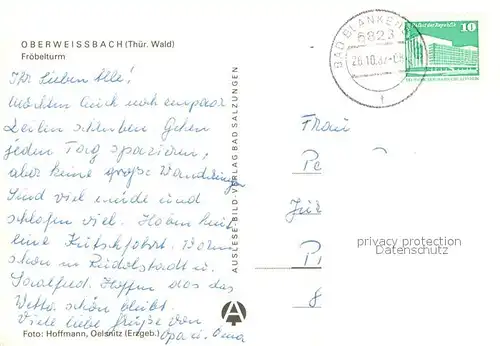 OBERWEISSBACH (Thür. Wald)
Fröbelturm
Ihr Lieben Alle!
Möchten Euch noch ein paar
Zeilen schreiben Gehen
jeden Tag spazieren,
aber keine große Wanderungen
Sind viel müde und
schlafen viel. Haben heut
eine Kutschfahrt. Waren
schon in Rudolstadt u.
Saalfeld. Hoffen das das
Wetter schön bleibt.
Viele liebe Grüße von
Opa u. Oma
Foto: Hoffmann, Oelsnitz (Erzgeb.)
AUSLESE-BILD-VERLAG BAD SALZUNGEN
A
BAD BLANKENB
6823
28.10.87
10
Frau
Pe
P
8
privacy protection
Datenschutz